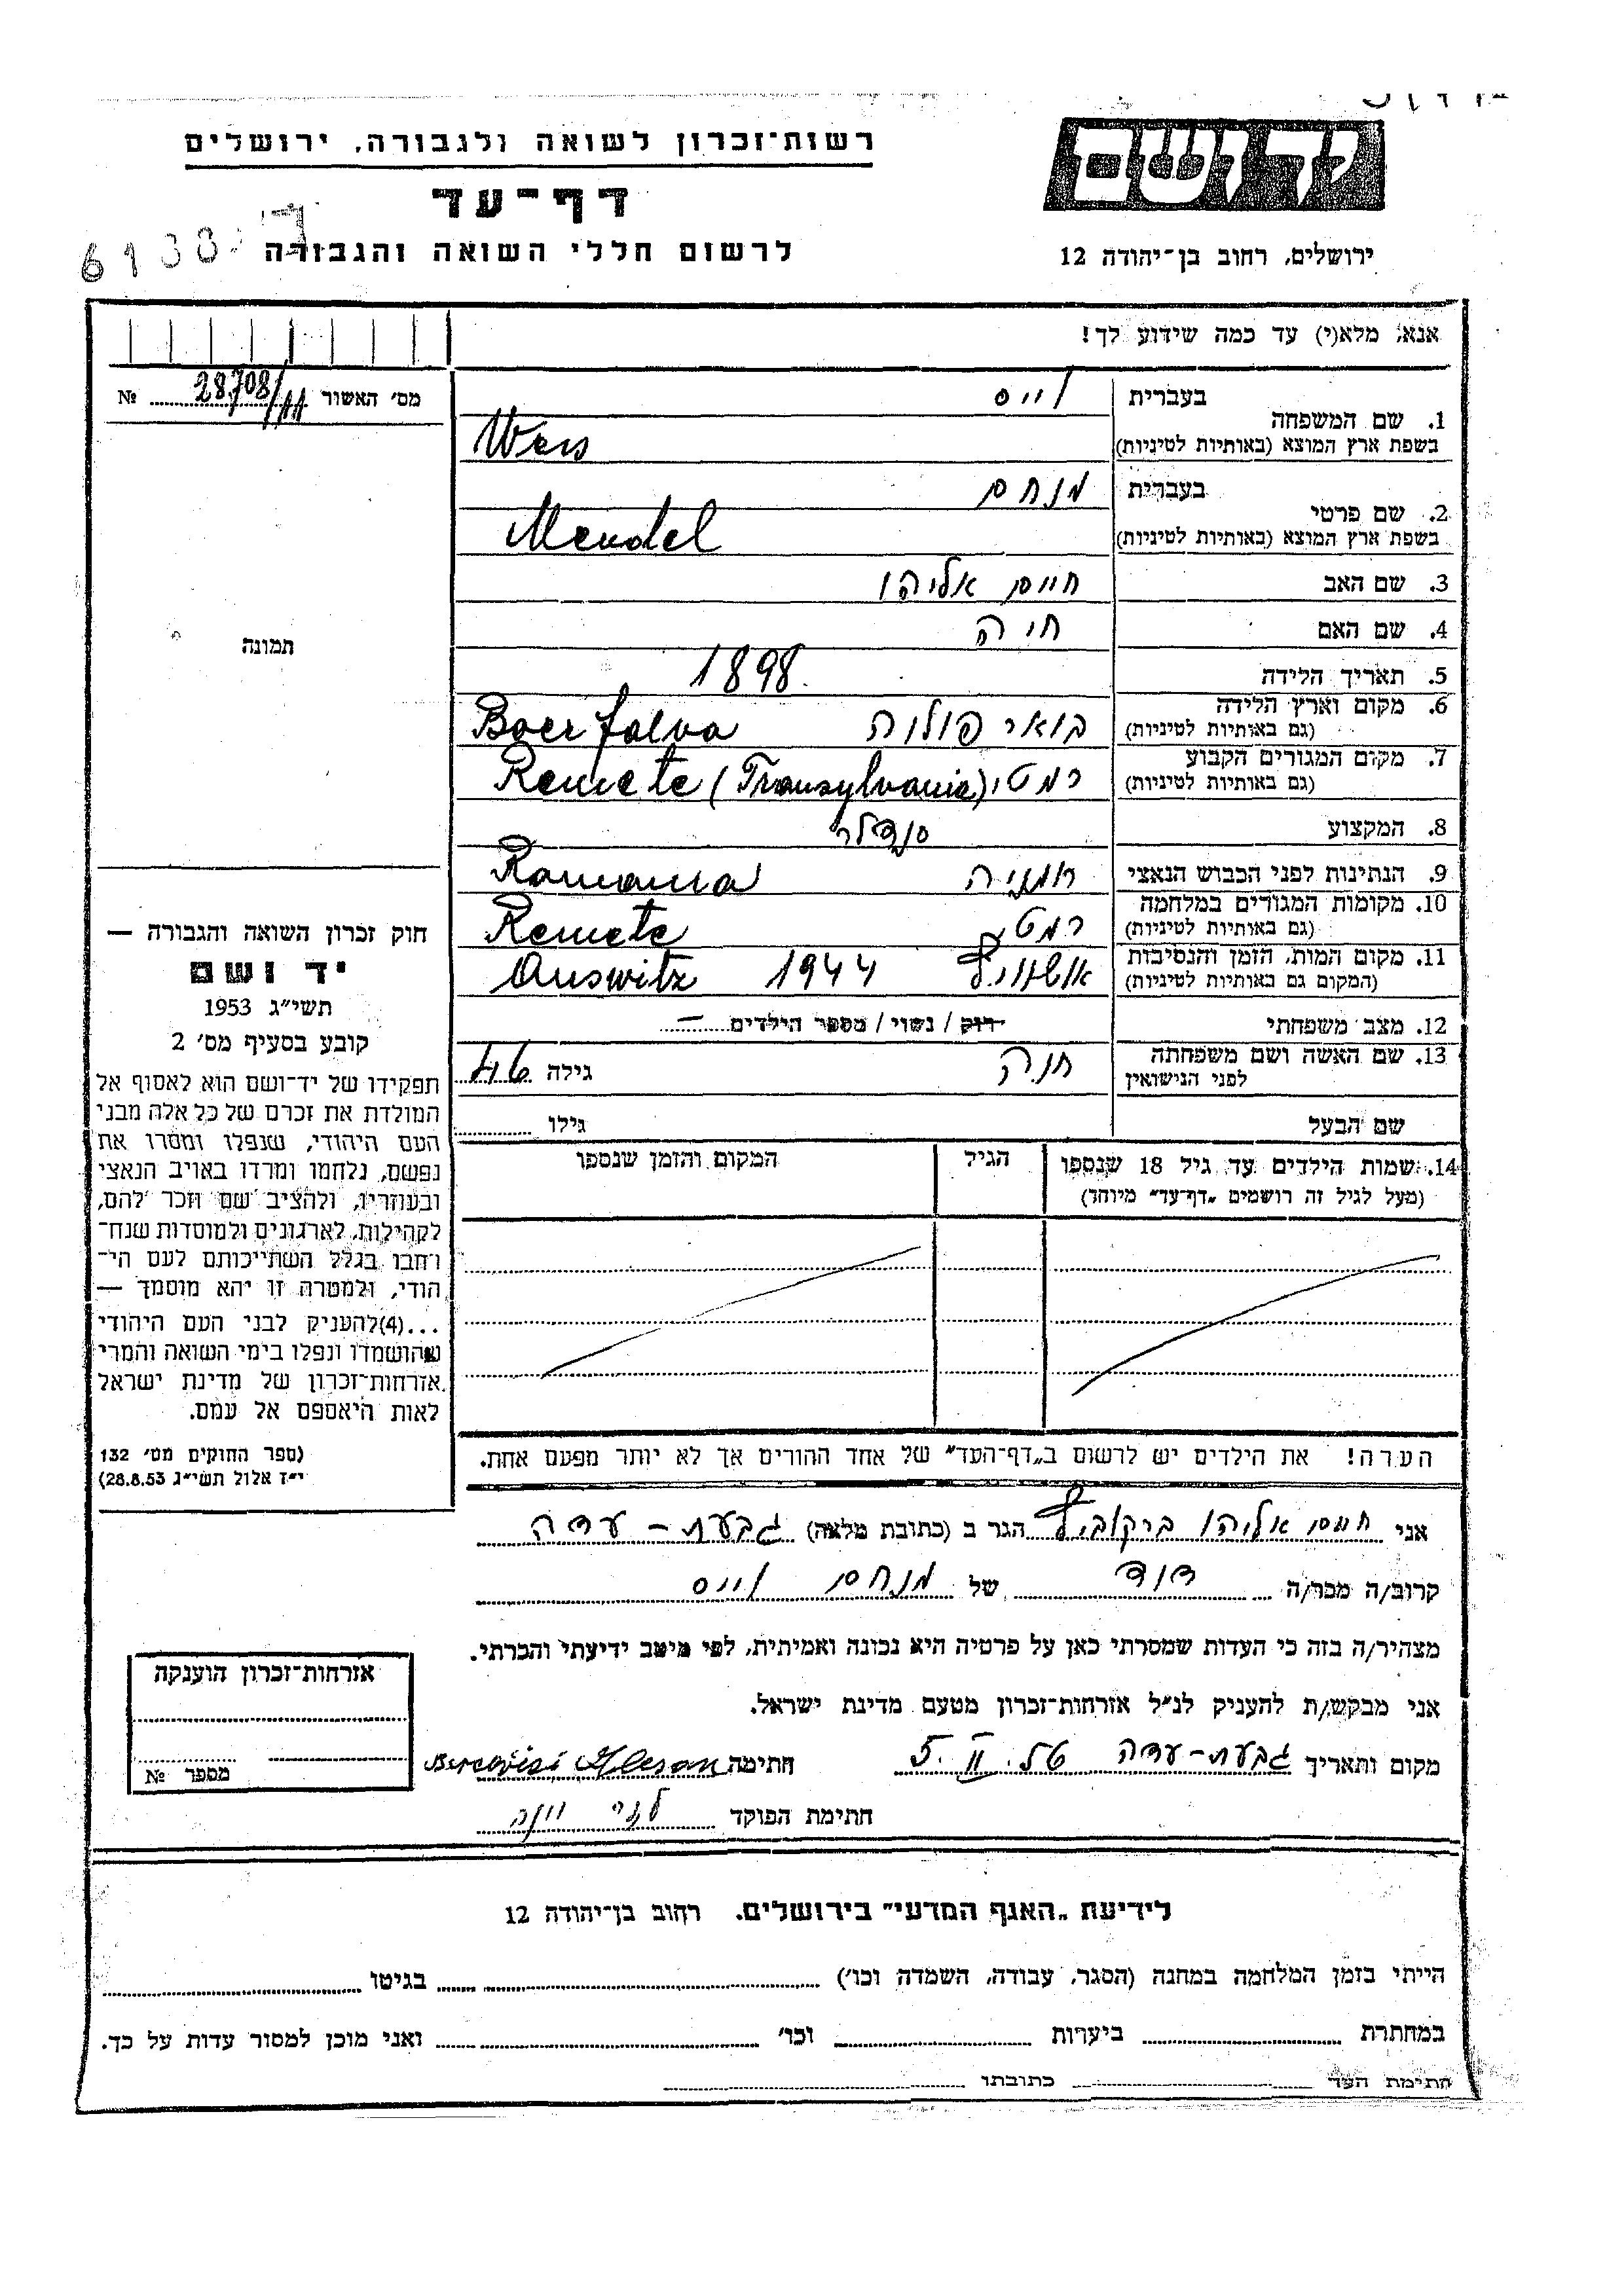 רשות־זכרון לשואה ולגבורה, ירושלים
יד ושם
דף־עד
לרשום חללי השואה והגבורה
ירושלים, רחוב בן־יהודה 12
אנא, מלא(י) עד כמה שידוע לך!
מס׳ האשור 28708/ №
1. שם המשפחה
בעברית וייס
בשפת ארץ המוצא (באותיות לטיניות) Weis
2. שם פרטי
בעברית מנחם
בשפת ארץ המוצא (באותיות לטיניות) Mendel
3. שם האב חיים אליהו
4. שם האם חיה
5. תאריך הלידה 1898.
6. מקום וארץ הלידה (גם באותיות לטיניות) בואי פולוה Boer falva
7. מקום המגורים הקבוע (גם באותיות לטיניות) רמטי Remete (Transylvania)
8. המקצוע סנדלר
9. הנתינות לפני הכבוש הנאצי רומניה Romania
10. מקומות המגורים במלחמה (גם באותיות לטיניות) רמטי Remete
11. מקום המות, הזמן והנסיבות (המקום גם באותיות לטיניות) אושוויץ 1944 Auswitz
12. מצב משפחתי רוק / נשוי / מספר הילדים —
13. שם האשה ושם משפחתה לפני הנישואין חנה גילה 46
שם הבעל גילו
14. שמות הילדים עד גיל 18 שנספו (מעל לגיל זה רושמים „דף־עד״ מיוחד)
הגיל
המקום והזמן שנספו
הערה! את הילדים יש לרשום ב„דף־העד״ של אחד ההורים אך לא יותר מפעם אחת.
תמונה
חוק זכרון השואה והגבורה —
יד ושם
תשי״ג 1953
קובע בסעיף מס׳ 2
תפקידו של יד־ושם הוא לאסוף אל
המולדת את זכרם של כל אלה מבני
העם היהודי, שנפלו ומסרו את
נפשם, נלחמו ומרדו באויב הנאצי
ובעוזריו, ולהציב שם וזכר להם,
לקהילות, לארגונים ולמוסדות שנח־
רבו בגלל השתייכותם לעם הי־
הודי, ולמטרה זו יהא מוסמך —
...(4) להעניק לבני העם היהודי
שהושמדו ונפלו בימי השואה והמרי
אזרחות־זכרון של מדינת ישראל
לאות היאספם אל עמם.
(ספר החוקים מס׳ 132
י״ז אלול תשי״ג 28.8.53)
אני חיים אליהו ביקוביץ הגר ב (כתובת מלאה) גבעת - עדה
קרוב/ה מכר/ה דוד של מנחם וייס
מצהיר/ה בזה כי העדות שמסרתי כאן על פרטיה היא נכונה ואמיתית, לפי מיטב ידיעתי והכרתי.
אני מבקש/ת להעניק לנ״ל אזרחות־זכרון מטעם מדינת ישראל.
מקום ותאריך גבעת-עדה 5.II חתימה
חתימת הפוקד
אזרחות־זכרון הוענקה
מספר №
לידיעת „האגף המדעי״ בירושלים, רחוב בן־יהודה 12
הייתי בזמן המלחמה במחנה (הסגר, עבודה, השמדה וכו׳) בגיטו
במחתרת ביערות וכו׳ ואני מוכן למסור עדות על כך.
חתימת העד כתובתו